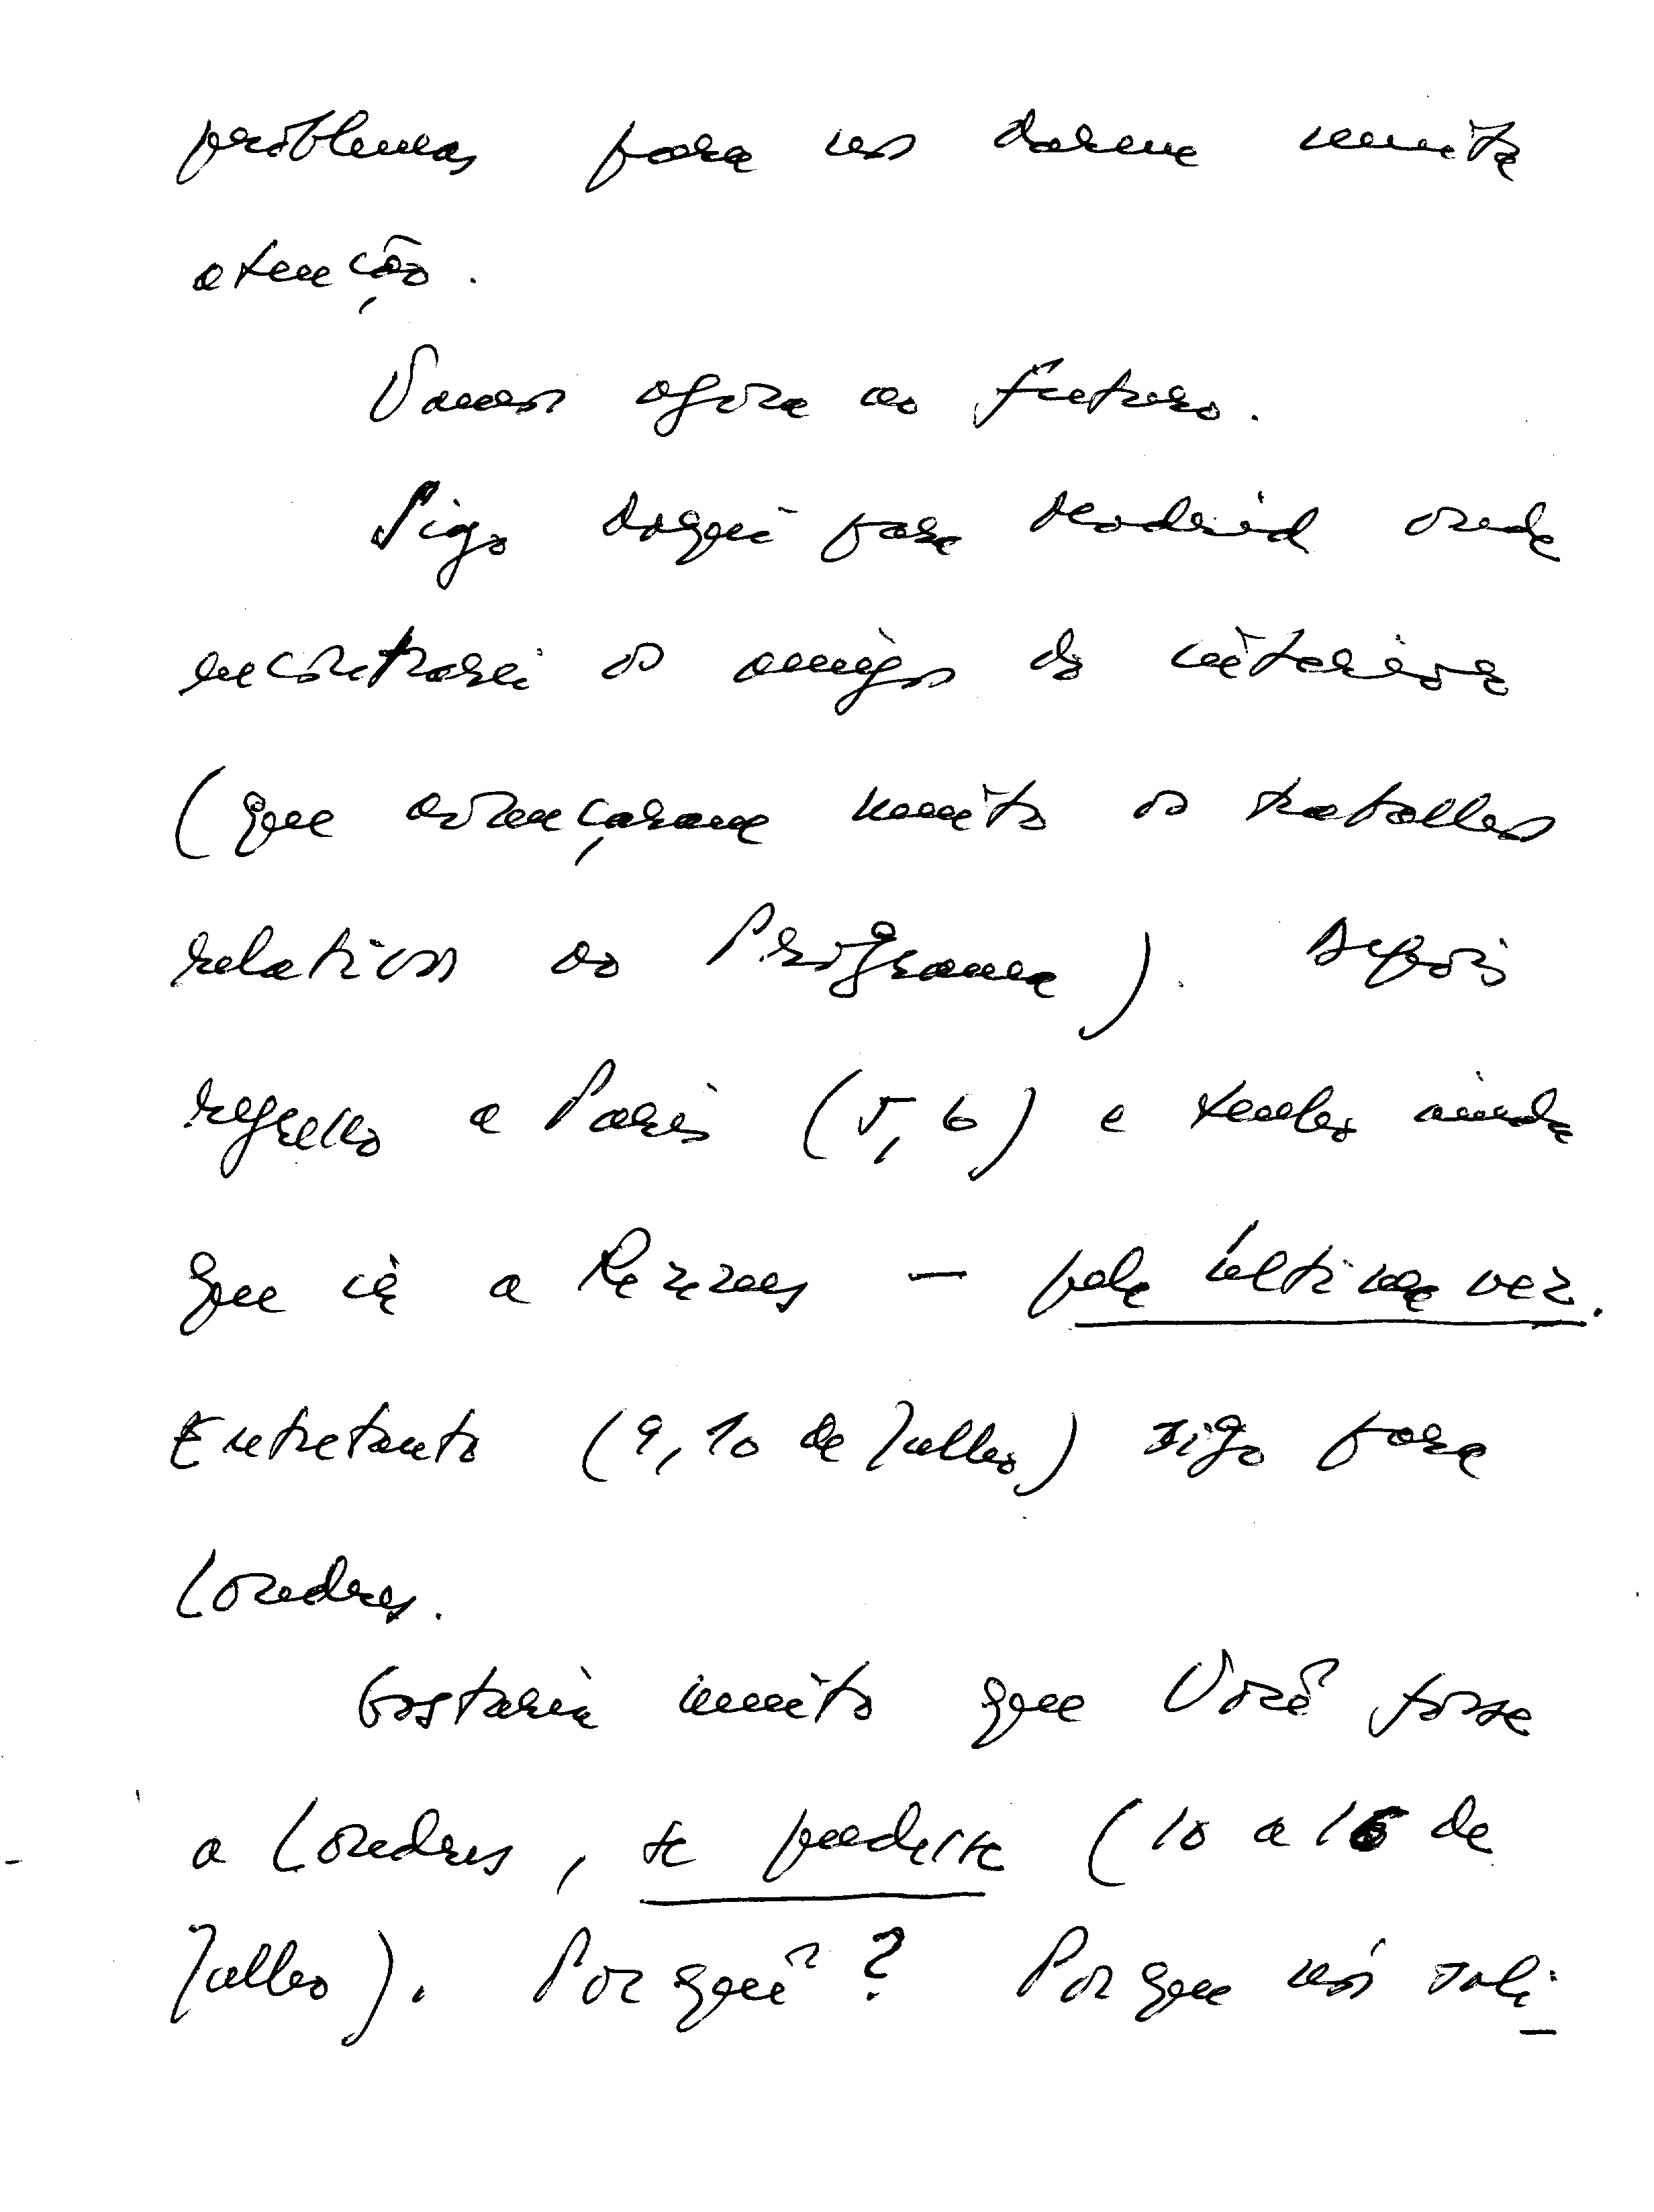 problemas para nos darem muita
atenção.
Vamos agora ao futuro.
Sigo daqui para Madrid onde
encontrarei os amigos do interior
(que avançaram muito os trabalhos
relativos ao Programa). Depois
regresso a Paris (5, 6) e tenho ainda
que ir a Rennes — pela última vez.
Entretanto (9, 10 de Julho) sigo para
Londres.
Gostaria muito que Você fosse
a Londres, se pudesse (10 a 16 de
Julho). Porquê? Porque nós soli-